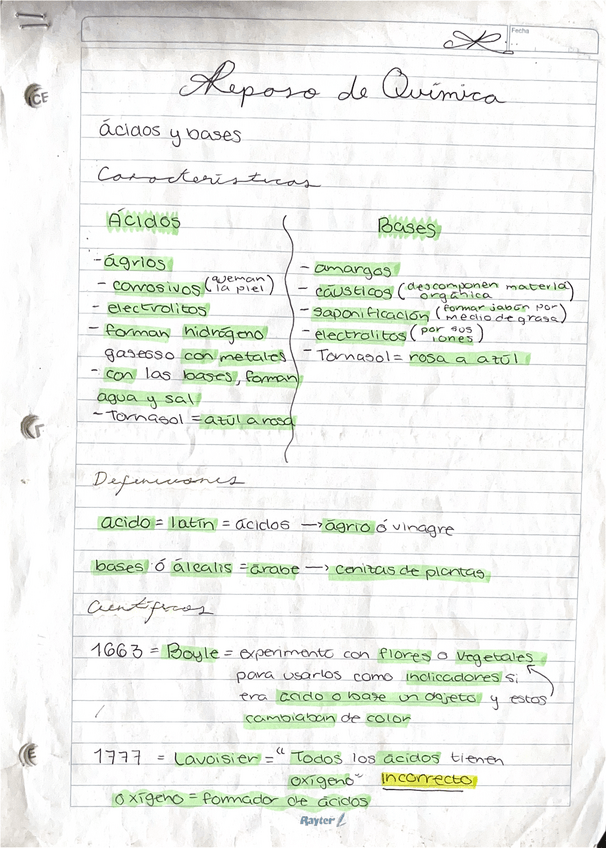 Fecha
Reposo de Química
ácidos y bases
Características
Ácidos
- ágrios
- corrosivos (queman la piel)
- electrolitos
- forman hidrógeno
gasesso con metales
- con las bases, forman
agua y sal
- Tornasol = azúl a rosa
Bases
- amargos
- cáusticos (descomponen materia orgánica)
- saponificación (formar jabón por medio de grasa)
- electrolitos (por sus iones)
- Tornasol = rosa a azúl
Definiciones
acido = latín = acidos → agrio ó vinagre
bases ó álcalis = árabe → cenizas de plantas
Científicos
1663 = Boyle = experimento con flores o vegetales
para usarlos como indicadores si
era ácido o base un objeto y estos
cambiaban de color
1777 = Lavoisier = "Todos los ácidos tienen
oxígeno" incorrecto
oxígeno = formador de ácidos
Rayter